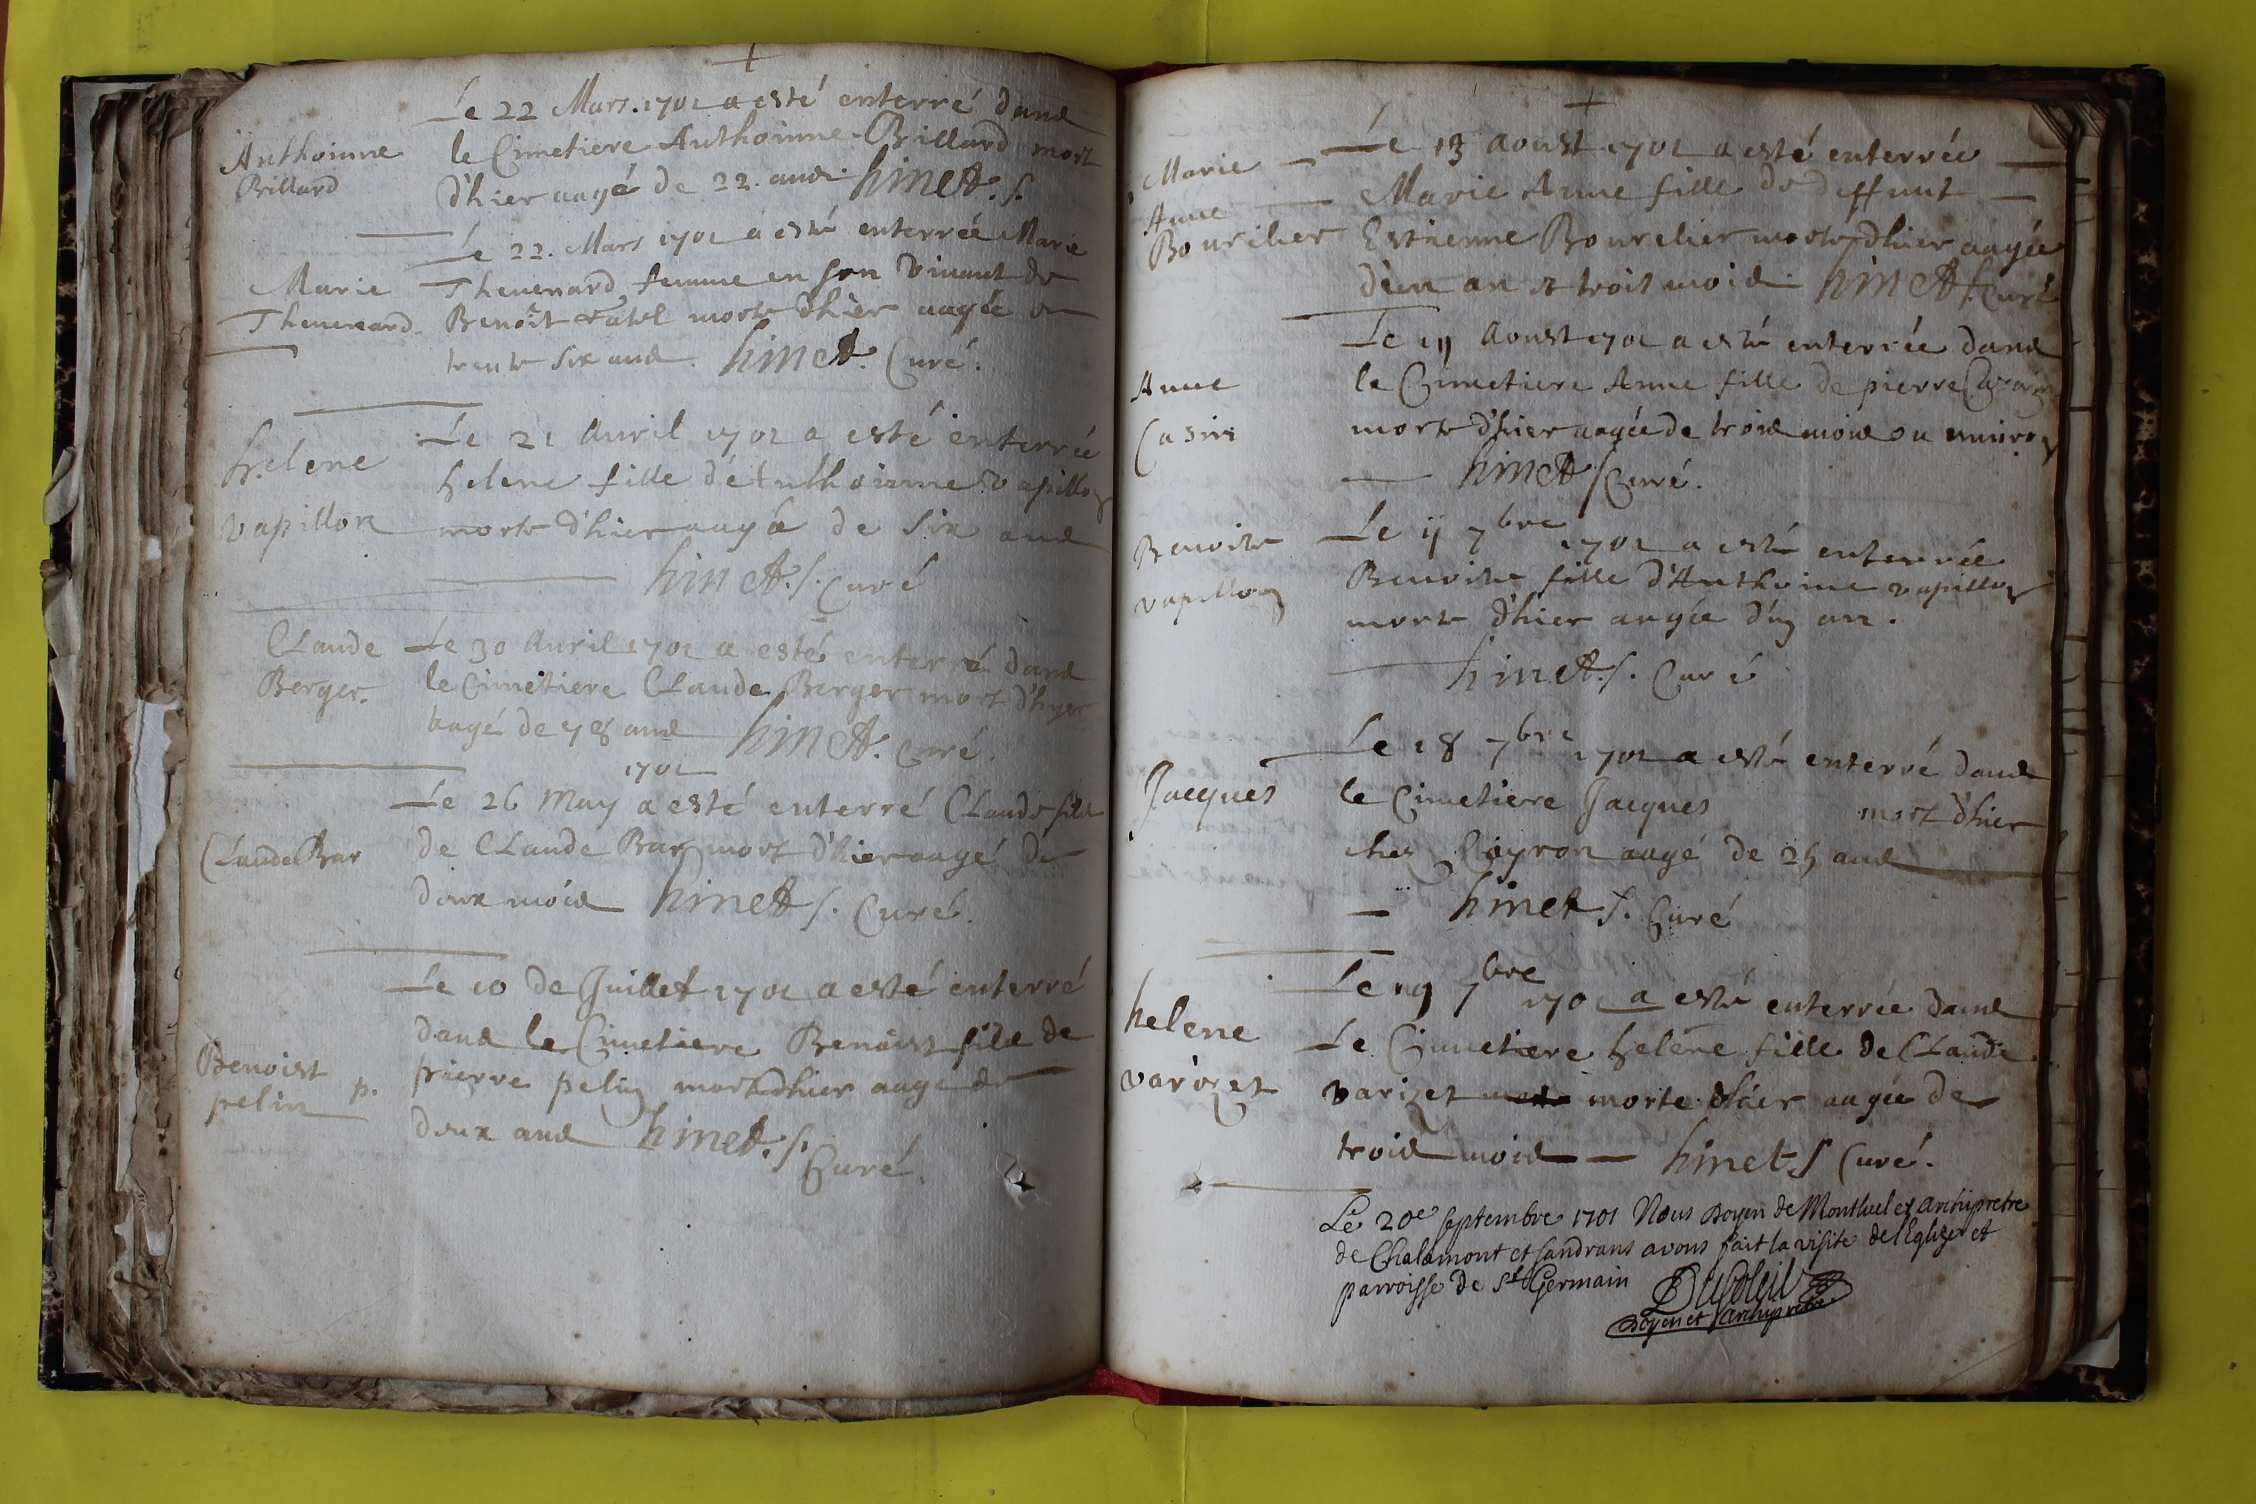 Le 22 Mars 1701 a esté enterré dans
Anthoinne
Brillard
le Cimetiere Anthoinne Brillard mort
d'hier aagé de 22. ans. hinet. s.
Le 22. Mars 1701 a esté enterrée Marie
Marie
Thevenard
Thevenard femme en son vivant de
Benoît morte d'hier aagée de
trente six ans. hinet. Curé.
helene
vapillon
Le 21 Auril 1701 a esté enterrée
helene fille d'Anthoinne vapillon
morte d'hier aagée de six ans
hinet. s. Curé
Claude
Berger.
Le 30 Auril 1701 a esté enterré dans
le Cimetiere Claude Berger mort d'hyer
aagé de 78 ans hinet. Curé.
1701
Claude Bar
Le 26 May a esté enterré Claude fils
de Claude Bar mort d'hier aagé de
deux mois hinet s. Curé.
Benoist
pelin p.
Le 10 de Juillet 1701 a esté enterré
dans le Cimetiere Benoist fils de
pierre pelin mort d'hier aage de
deux ans hinet. s. Curé.
Marie
Anne
Bourlier
Le 13 Aoust 1701 a esté enterrée
Marie Anne fille de deffunt
Estienne Bourelier morte d'hier aagée
d'un an et trois mois. hinet s. Curé
Anne
Le 19 Aoust 1701 a esté enterrée dans
le Cimetiere Anne fille de pierre
morte d'hier aagée de trois mois ou environ
hinet s Curé.
Benoite
vapillon
Le 11 7bre 1701 a esté enterrée
Benoite fille d'Anthoine vapillon
morte d'hier aagée d'un an.
hinet. s. Curé
Jacques
Le 18 7bre 1701 a esté enterré dans
le Cimetiere Jacques mort d'hier
chez aagé de 25 ans
hinet s. Curé
helene
varizet
Le 19 7bre 1701 a esté enterrée dans
Le Cimetiere helene fille de Claude
varizet morte d'hier aagée de
trois mois hinet s Curé.
Le 20e septembre 1701 Nous Doyen de Montluel et archipretre
de Chalamont et sandrans avons fait la visite de l'Eglize et
parroisse de St Germain Dusoleil
Doyen et Archipretre